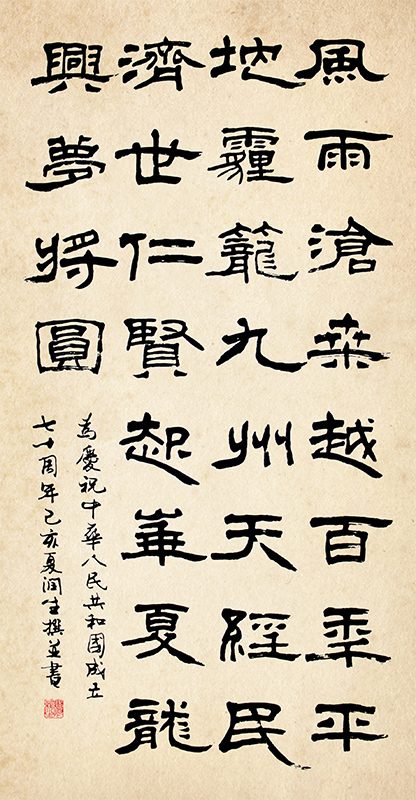 風雨滄桒越百秊平
地霾籠九州天經民
濟世仁賢起華夏龍
興夢將圓
為慶祝中華人民共和國成立
七十周年己亥夏润生撰並書